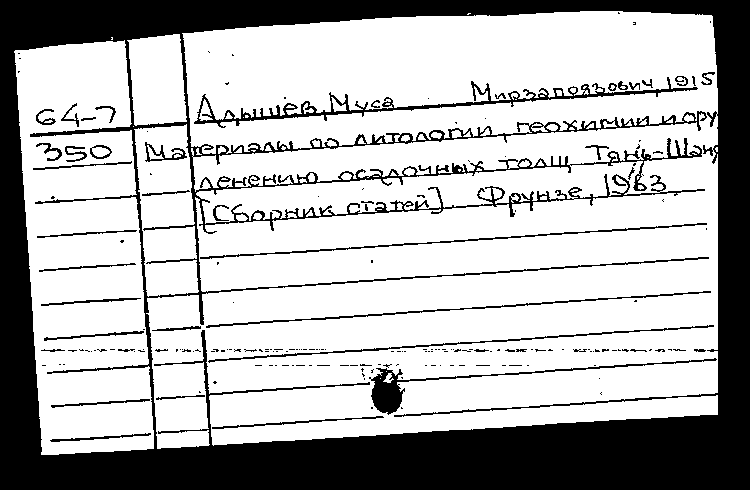 64-7 Адышев, Муса Мирзапоязович, 1915
350 Материалы по литологии, геохимии и ору
денению осадочных толщ Тянь-Шаня
[Сборник статей]. Фрунзе, 1963